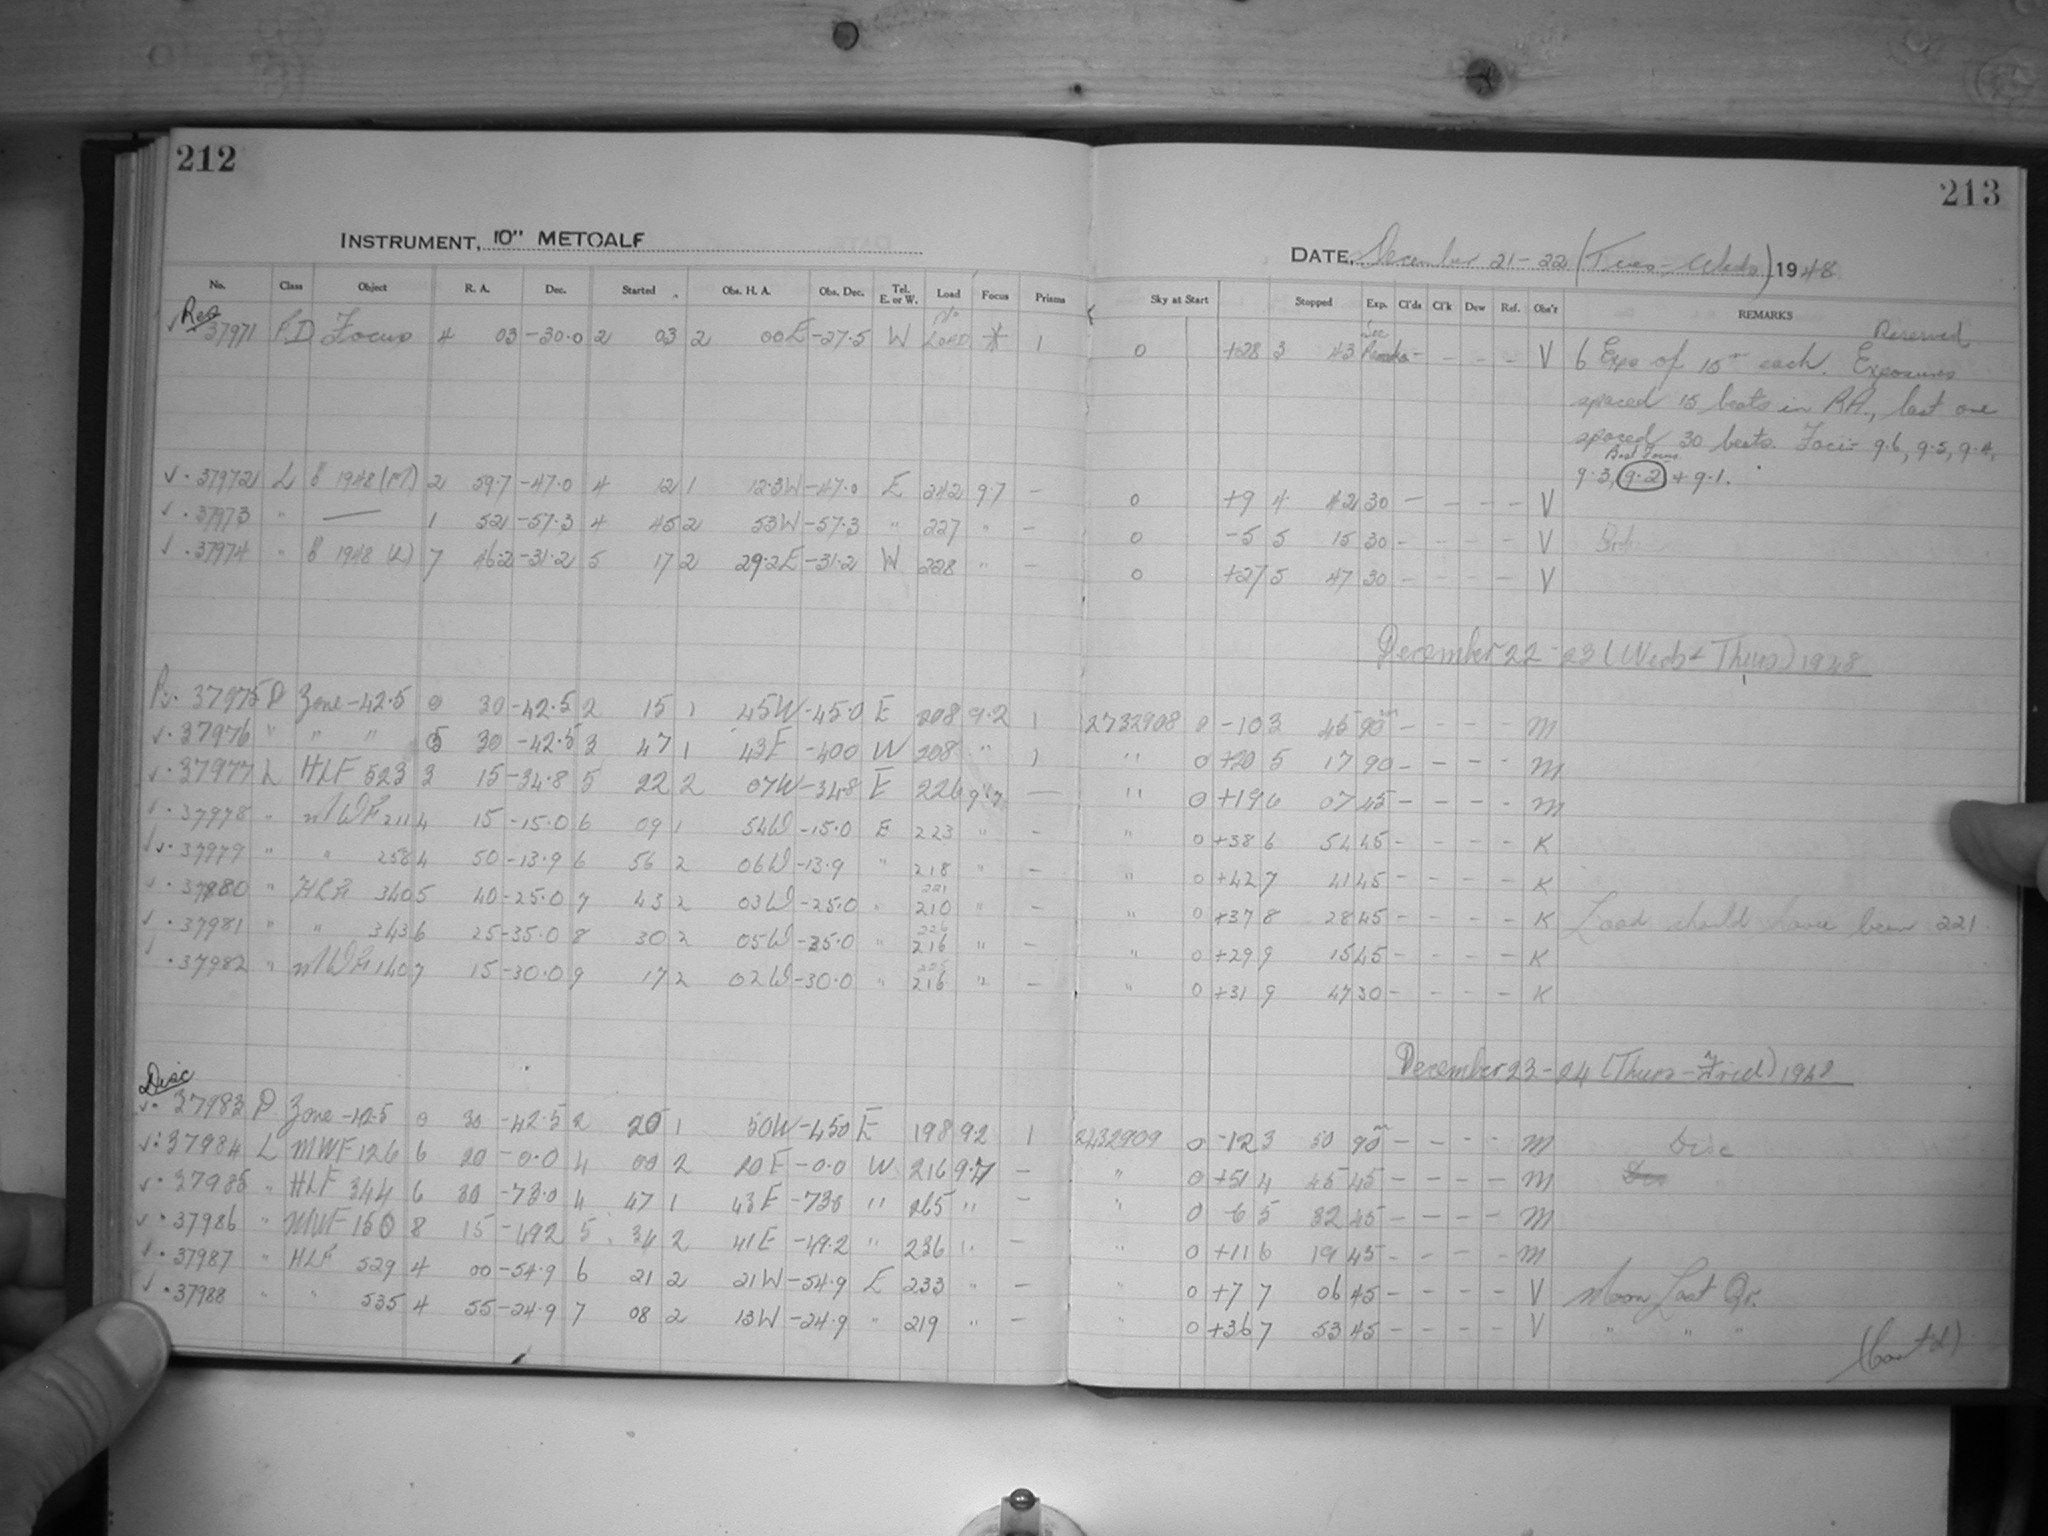 212
213
INSTRUMENT, 10" METCALF
DATE, December 21-22 (Tues-Weds) 1948
No. Class Object R. A. Dec. Started Obs. H. A. Obs. Dec. Tel. E. or W. Load Focus Prisms Sky at Start Stopped Exp. Cl'ds Cl'k Dew Ref. Obs'r REMARKS
Res
37971 P.D Focus 4 03 -30.0 2 03 2 00E -27.5 W No LOAD * 1 0 +28 3 43 See Remarks - - - - V 6 Exps of 15m each. Exposures Reserved
spaced 15 beats in RA., last one
spaced 30 beats. Foci:- 9.6, 9.5, 9.4,
Best Focus
9.3, 9.2 + 9.1.
37972 L 1948 (M) 2 59.7 -47.0 4 12 1 12.3W -47.0 E 242 9.7 - 0 +9 4 42 30 - - - - V
37973 " — 1 52 -57.3 4 45 2 53W -57.3 " 227 " - 0 -5 5 15 30 - - - - V
37974 " 1948 (L) 7 46.2 -31.2 5 17 2 29.2E -31.2 W 228 " - 0 +27 5 47 30 - - - - V
December 22-23 (Weds + Thurs) 1948
37975 P Zone -42.5 0 30 -42.5 2 15 1 45W -45.0 E 208 9.2 1 2732908 0 -10 3 45 90m - - - - M
37976 " " " 5 30 -42.5 3 47 1 43E -400 W 208 " 1 " 0 +20 5 17 90 - - - - M
37977 L HLF 523 3 15 -34.8 5 22 2 07W -348 E 226 9.7 — " 0 +19 6 07 45 - - - - M
37978 " MWF 211 4 15 -15.0 6 09 1 54W -15.0 E 223 " - " 0 +38 6 54 45 - - - - K
37979 " " 258 4 50 -13.9 6 56 2 06W -13.9 " 218 " - " 0 +42 7 41 45 - - - - K
37980 " HLF 340 5 40 -25.0 7 43 2 03W -25.0 " 221 210 " - " 0 +37 8 28 45 - - - - K Load should have been 221.
37981 " " 343 6 25 -35.0 8 30 2 05W -35.0 " 226 216 " - " 0 +29 9 15 45 - - - - K
37982 " MWF 140 7 15 -30.0 9 17 2 02W -30.0 " 225 216 " - " 0 +31 9 47 30 - - - - K
December 23-24 (Thurs-Frid) 1948
Disc
37983 P Zone -42.5 0 30 -42.5 2 20 1 50W -450 E 198 92 1 2432909 0 -12 3 50 90m - - - - M Disc
37984 L MWF 126 6 20 -0.0 4 00 2 20E -0.0 W 216 9.7 - " 0 +51 4 45 45 - - - - M
37985 " HLF 344 6 30 -73.0 4 47 1 43E -730 " 265 " - " 0 -6 5 32 45 - - - - M
37986 " MWF 150 8 15 -492 5 34 2 41E -49.2 " 236 " - " 0 +11 6 19 45 - - - - M
37987 " HLF 529 4 00 -54.9 6 21 2 21W -54.9 E 233 " - " 0 +7 7 06 45 - - - - V Moon Last Qr.
37988 " " 535 4 55 -24.9 7 08 2 13W -24.9 " 219 " - " 0 +36 7 53 45 - - - - V " " "
(Cont'd)